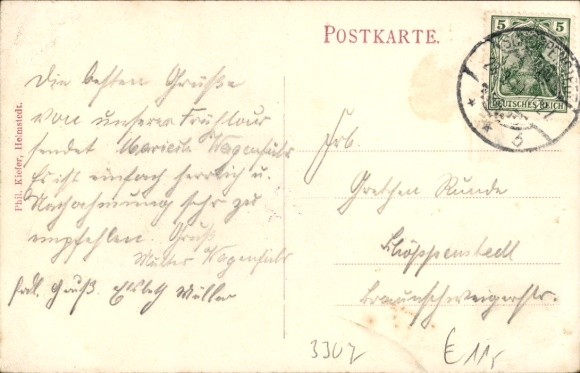 POSTKARTE.
5
DEUTSCHES REICH
6
Phil. Kiefer, Helmstedt.
Die besten Grüße
von unserer Frühtour
sendet Mariechen Wagenführ
Es ist einfach herrlich u.
Nachahmung sehr zu
empfehlen. Gruß
Mutter Wagenführ
frdl. Gruß. Elsbeth Müller
Frl.
Gretchen Runde
Schöppenstedt
Braunschweigerstr.
3307
E 11,-